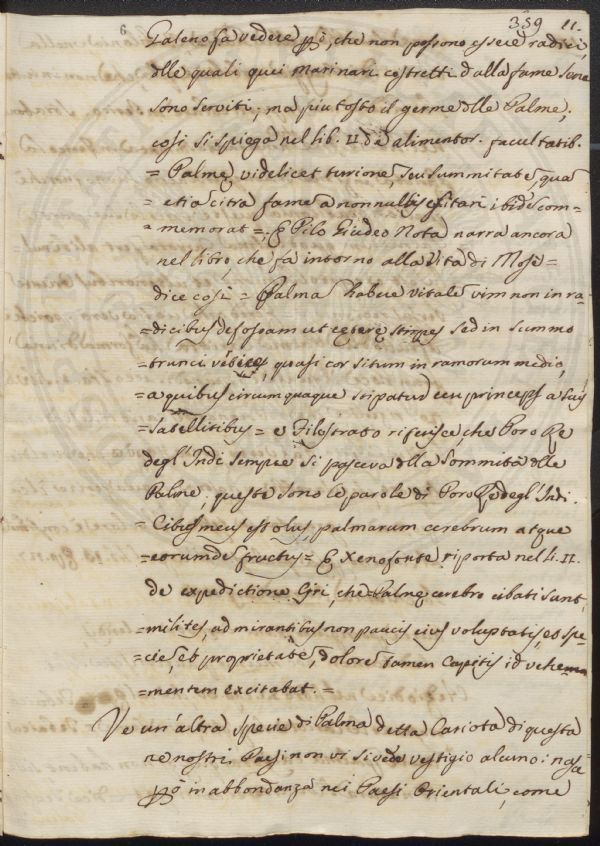 6
359 11.
Galeno fa vedere ꝑò, che non possono essere radici,
dlle quali quei marinari costretti dalla fame sene
sono serviti; ma piu tosto il germe dlle Palme;
cosi si spiega nel lib. II de alimentor. facultatib.
= Palmę videlicet turionē, seu summitatē, qua
= etiā citra famē a nonnullis esitari ibidē com=
= memorat =; E Filo Giudeo Nota narra ancora
nel libro, che fà intorno alla Vita di Mosè =
dice così = Palma habere vitalē vim non in ra=
= dicibus defossam ut ceterę stirpes sed in summo
= trunci vertice, quasi cor situm in ramorum medio,
= a quibus circumquaque stipatur ceu princeps a suis
= satellitibus = e Filostrato riferisce che Poro Re
degl'Indi sempre si pasceva dlla Sommità dlle
Palme; queste sono le parole di Poro Re degl'Indi.
= Cibus meus est olus, palmarum cerebrum atque
= eorumdē fructus = E Xenofonte riporta nel li. II.
de expeditione Ciri, che Palmę cerebro cibati sunt
= milites, admirantibus non paucis eius voluptatis, et spe=
= ciē, et proprietatē, dolorē tamen capitis id vehem
= mentem excitabat. =
Ve un'altra specie di Palma detta Cariota di questa
ne nostri Paesi non vi si vede vestigio alcuno: nasce
ꝑò in abbondanza nei Paesi Orientali, come